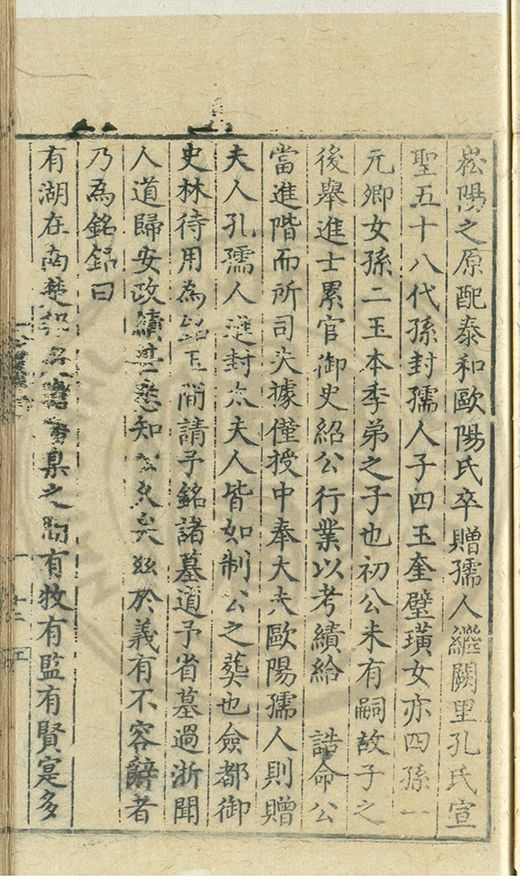 崧陽之原配泰和歐陽氏卒贈孺人繼闕里孔氏宣
聖五十八代孫封孺人子四玉奎璧璜女亦四孫一
元卿女孫二玉本季弟之子也初公未有嗣故子之
後舉進士累官御史紹公行業以考績給 誥命公
當進階而所司失據僅授中奉大夫歐陽孺人則贈
夫人孔孺人進封太夫人皆如制公之葬也僉都御
史林待用為銘下間請予銘諸墓道予省墓過浙聞
人道歸安政績甚悉知公久矣玆於義有不容辭者
乃為銘銘曰
有湖在南楚
臬之間有牧有監有賢寔多